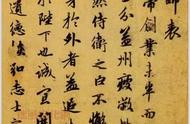 師表
帝創業未半而
分益州疲敝
然侍衛之臣不懈
身於外者蓋追
於陛下也誠宜開
遺德恢弘志士